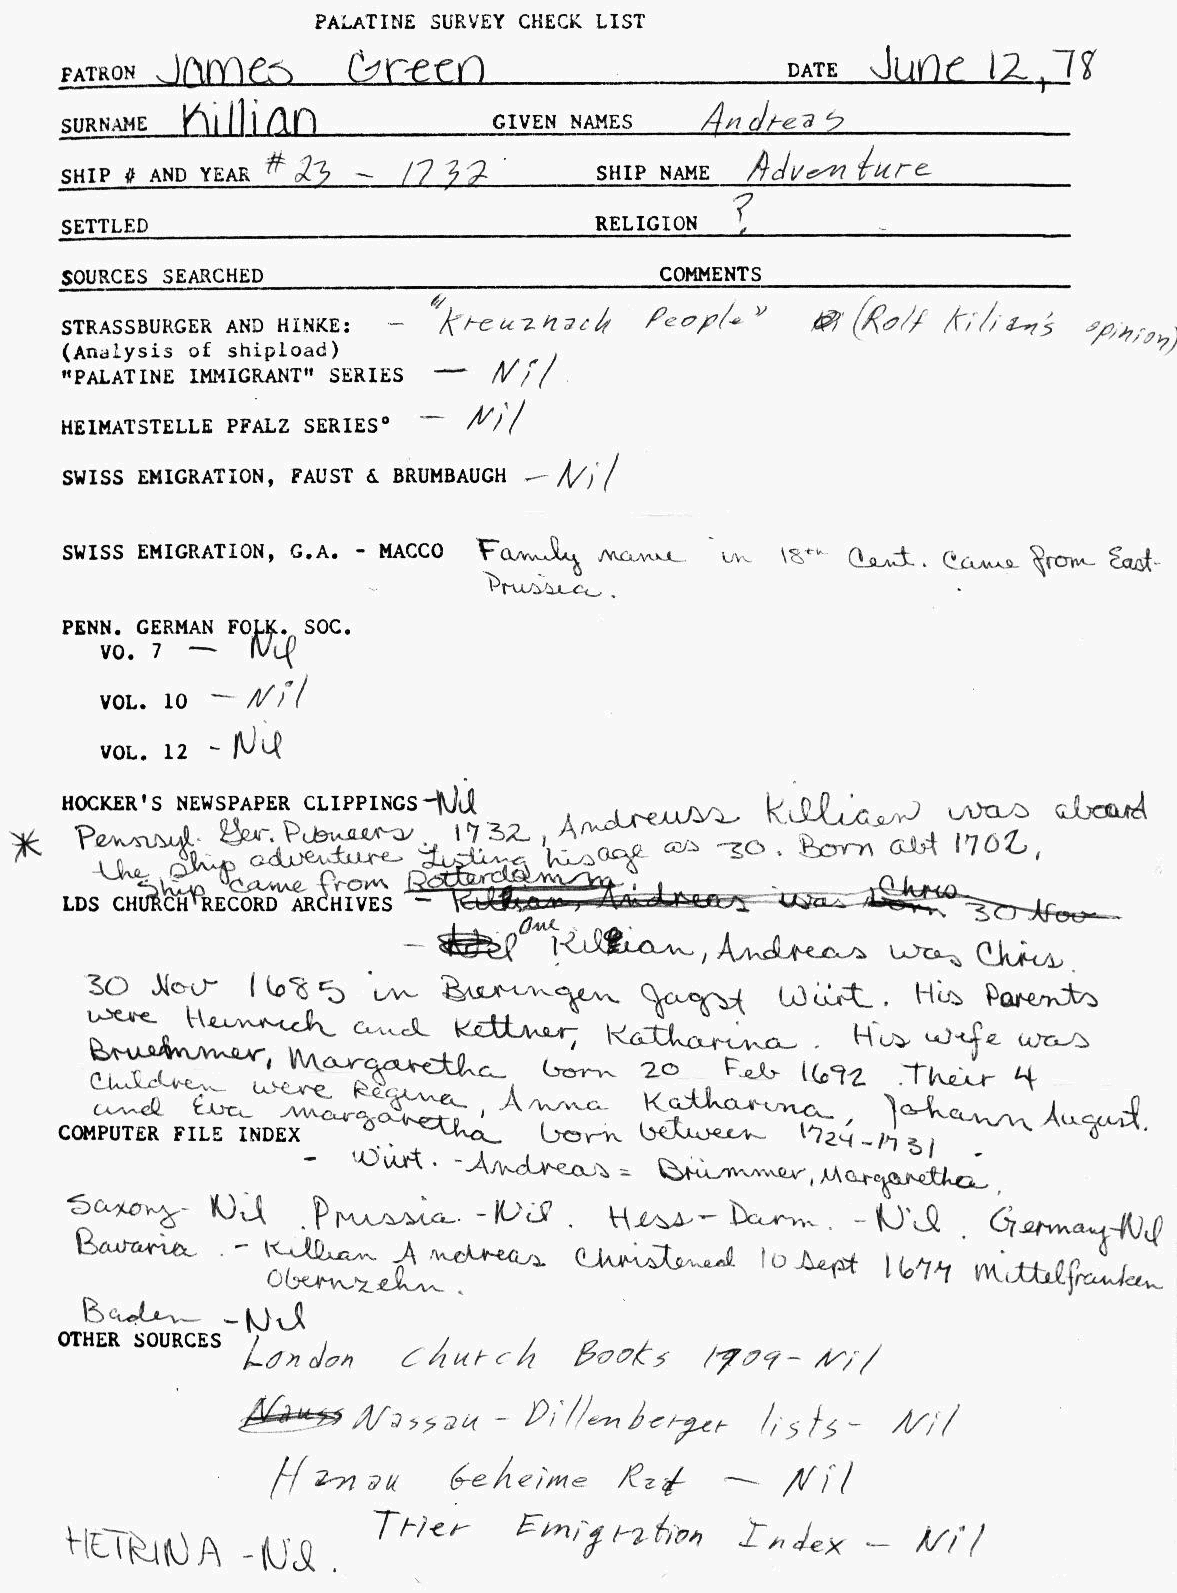 PALATINE SURVEY CHECK LIST
PATRON James Green DATE June 12, 78
SURNAME Killian GIVEN NAMES Andreas
SHIP # AND YEAR #23 - 1732 SHIP NAME Adventure
SETTLED RELIGION ?
SOURCES SEARCHED COMMENTS
STRASSBURGER AND HINKE: - "Kreuznach People" (Rolf Kilian's opinion)
(Analysis of shipload)
"PALATINE IMMIGRANT" SERIES - Nil
HEIMATSTELLE PFALZ SERIES° - Nil
SWISS EMIGRATION, FAUST & BRUMBAUGH - Nil
SWISS EMIGRATION, G.A. - MACCO Family name in 18th Cent. came from East-
Prussia.
PENN. GERMAN FOLK. SOC.
VO. 7 - Nil
VOL. 10 - Nil
VOL. 12 - Nil
HOCKER'S NEWSPAPER CLIPPINGS - Nil
* Pennsyl. Ger. Pioneers. 1732, Andreuss Killiaen was aboard
the ship adventure Listing his age as 30. Born abt 1702,
Ship came from Rotterdamm.
LDS CHURCH RECORD ARCHIVES - Killian, Andreas was born Chris 30 Nov
- One Killian, Andreas was Chris.
30 Nov 1685 in Bieringen Jagst Würt. His Parents
were Heinrich and Kettner, Katharina. His wife was
Bruemmer, Margaretha born 20 Feb 1692. Their 4
Children were Regina, Anna Katharina, Johann August.
and Eva Margaretha born between 1724-1731.
COMPUTER FILE INDEX
- Würt. - Andreas = Brümmer, Margaretha.
Saxony - Nil. Prussia. - Nil. Hess - Darm. - Nil. Germany - Nil
Bavaria. - Killian Andreas Christened 10 Sept 1677 Mittelfranken
Obernzehn.
Baden - Nil
OTHER SOURCES
London Church Books 1709 - Nil
Nauss Nassau - Dillenberger lists - Nil
Hanau Geheime Rat - Nil
Trier Emigration Index - Nil
HETRINA - Nil.